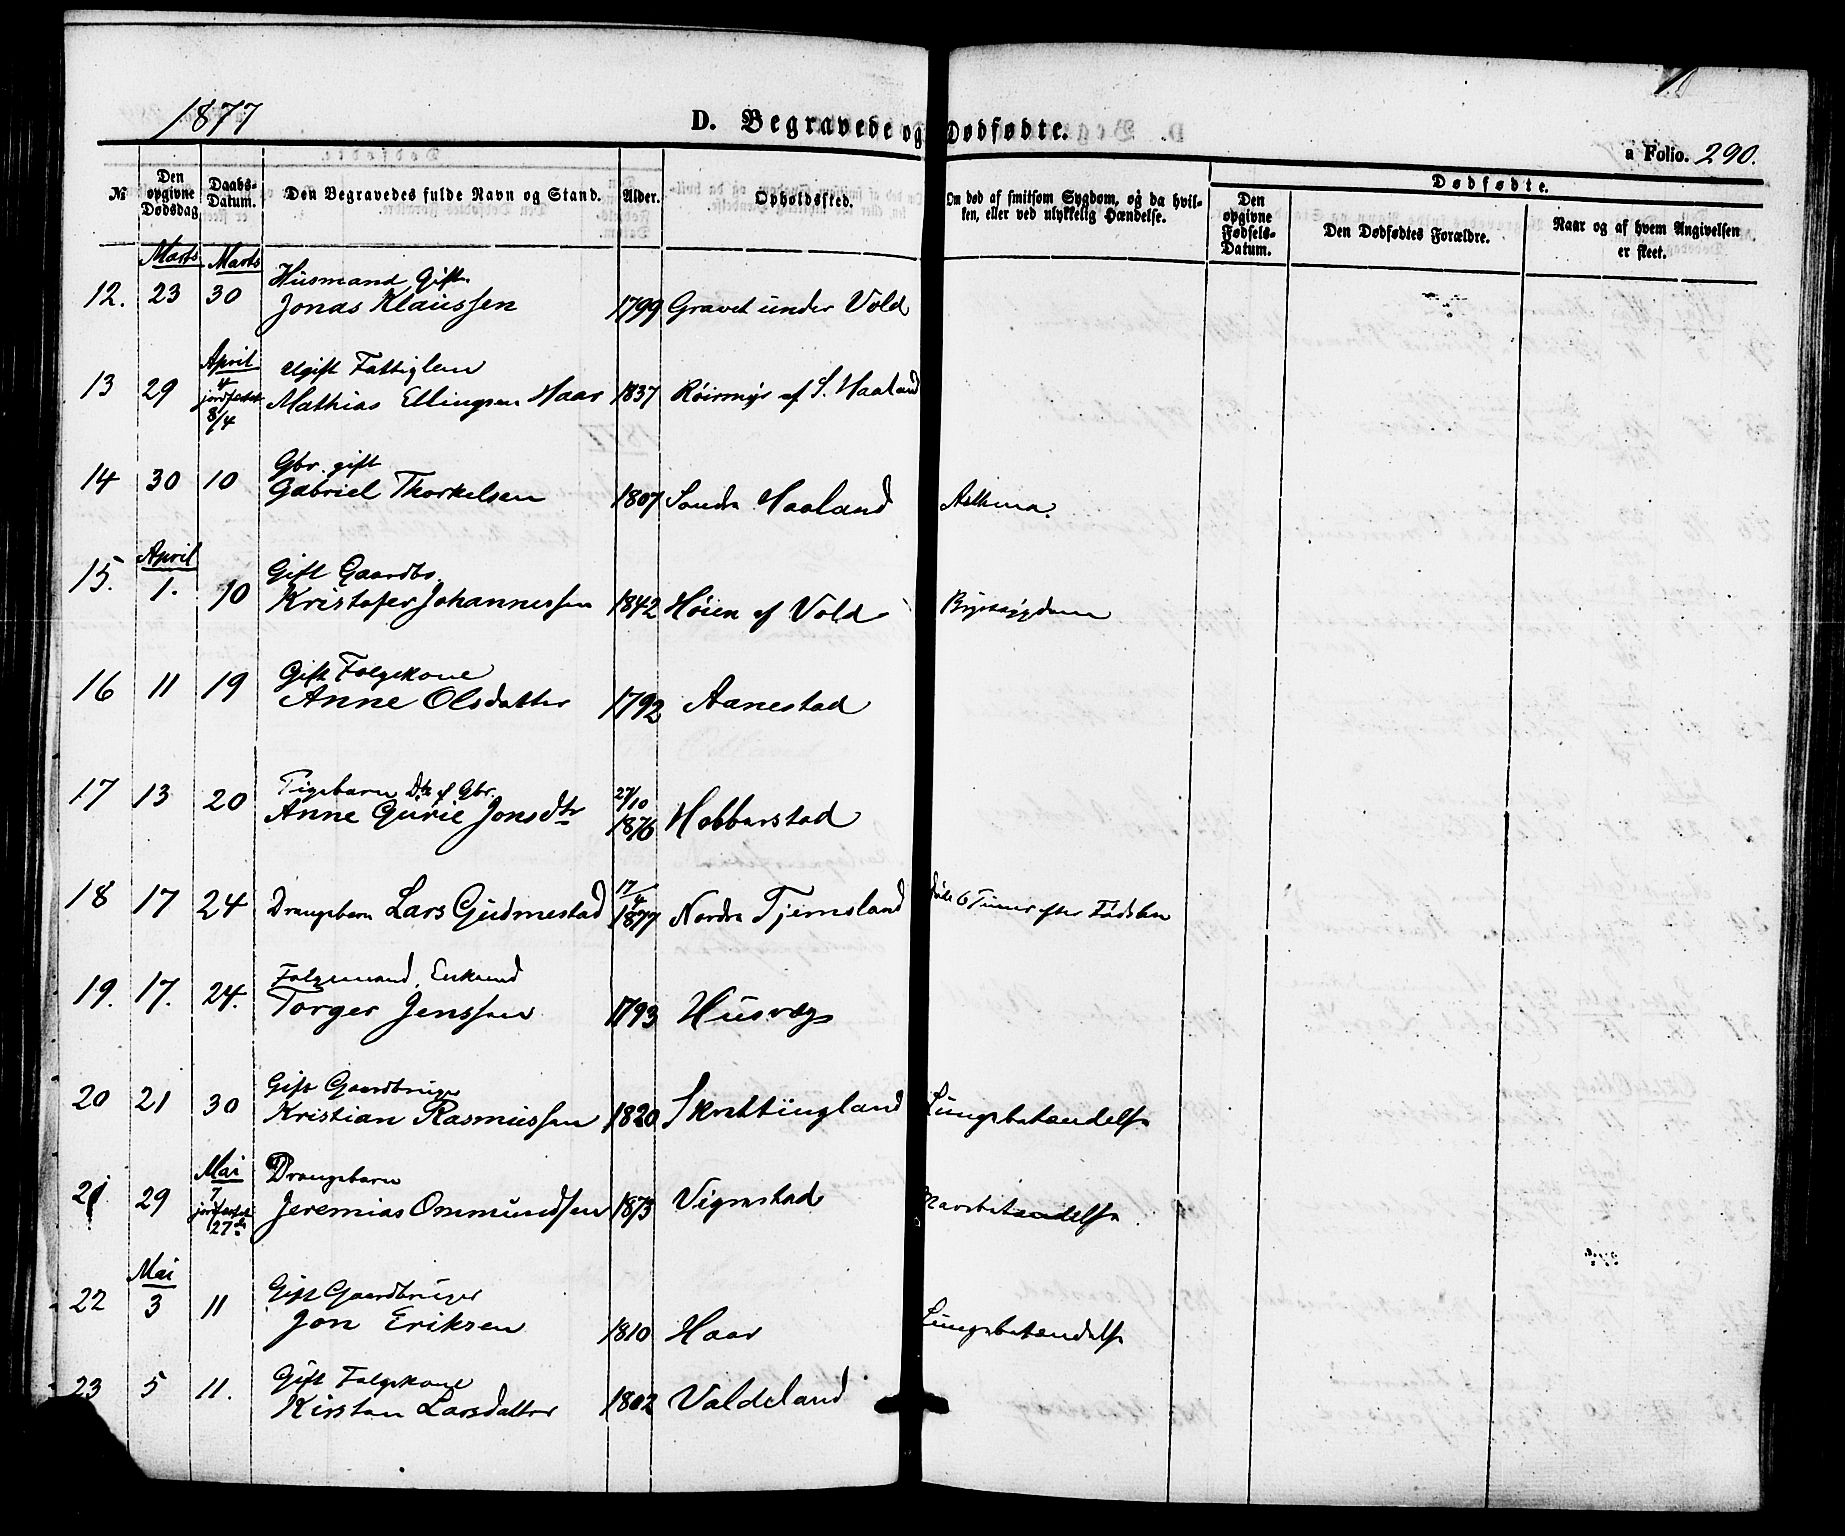 1877
D. Begravede og Dødfødte.
a Folio. 290.
№
Den opgivne Dødsdag
Daabs-Datum.
Den Begravedes fulde Navn og Stand.
Alder.
Opholdssted.
Om død af smitsom Sygdom, og da hvil-
ken, eller ved ulykkelig Hændelse.
Dødfødte.
Den opgivne Fødsels-Datum.
Den Dødfødtes Forældre.
Naar og af hvem Angivelsen
er skeet.
Marts Marts Husmand, Gift.
12. 23 30 Jonas Klaussen 1799 Gravet under Vold
April ugift Fattiglem
13 29 4 jordfæstet 8/4 Mathias Ellingsen Haar 1837 Røirmyr af S. Haaland
Gbr. gift
14 30 10 Gabriel Thorkelsen 1807 Søndre Haaland Asthma.
April Gift Gaardbr.
15. 1. 10 Kristofer Johannessen 1842 Høien af Vold Brystsygdom
Gift Folgekone
16 11 19 Anne Olsdatter 1792 Aanestad
Pigebarn Dtr. af Gbr.
17 13 20 Anne Gurie Jonsdtr 27/10 1876 Hobberstad
18 17 24 Drengebarn Lars Gudmestad 17/4 1877 Nordre Tjemsland døde 6 Timer efter Fødslen
Folgemand, Enkemd
19. 17. 24. Torger Jenssen 1793 Husvæg
Gift Gaardbruger
20 21 30 Kristian Rasmussen 1820 Skrettingland Lungebetændelse
Mai Drengebarn
21 29 7 jordfæstet 27de Jeremias Ommundsen 1873 Vigrestad betændelse
Mai Gift Gaardbruger
22 3 11 Jon Eriksen 1810 Haar Lungebetændelse
Gift Folgekone
23 5 11. Kirsten Larsdatter 1802 Valdeland